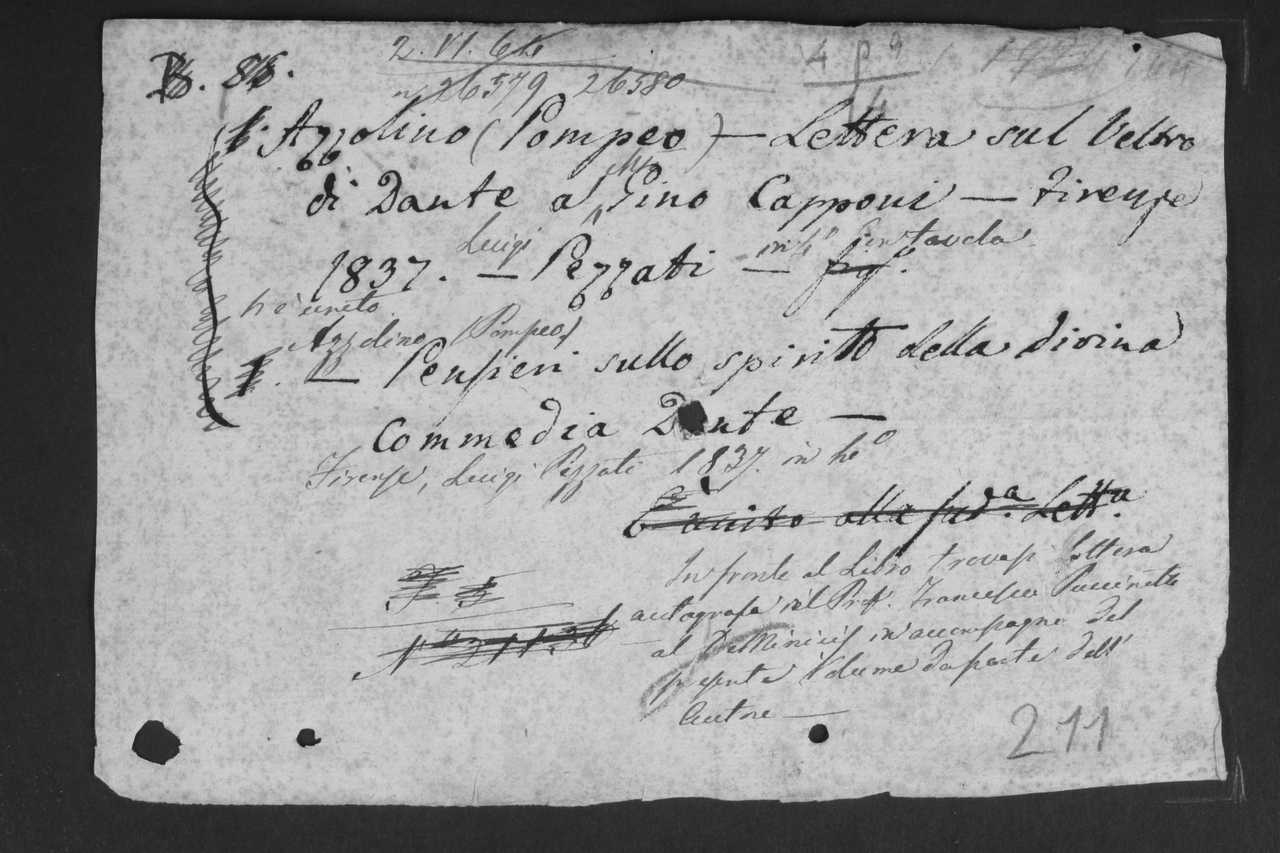 2. VI. 6
n. 26579 26580
4 p 9
4
B. 86.
1. Azzolino (Pompeo) — Lettera sul Veltro
di Dante a Mso Gino Capponi — Firenze
1837. — Luigi Pezzati — in 4° con tavola fig.
V'è unito
Azzolino (Pompeo)
— Pensieri sullo spirito della divina
Commedia Dante —
Firenze, Luigi Pezzati 1837. in 4°
È unito alla sudª. Lettª.
In fronte al Libro trovasi lettera
autografa del Prof. Francesco Puccinotti
al De Minicis in accompagno del
presente Volume da parte dell'
Autore —
211